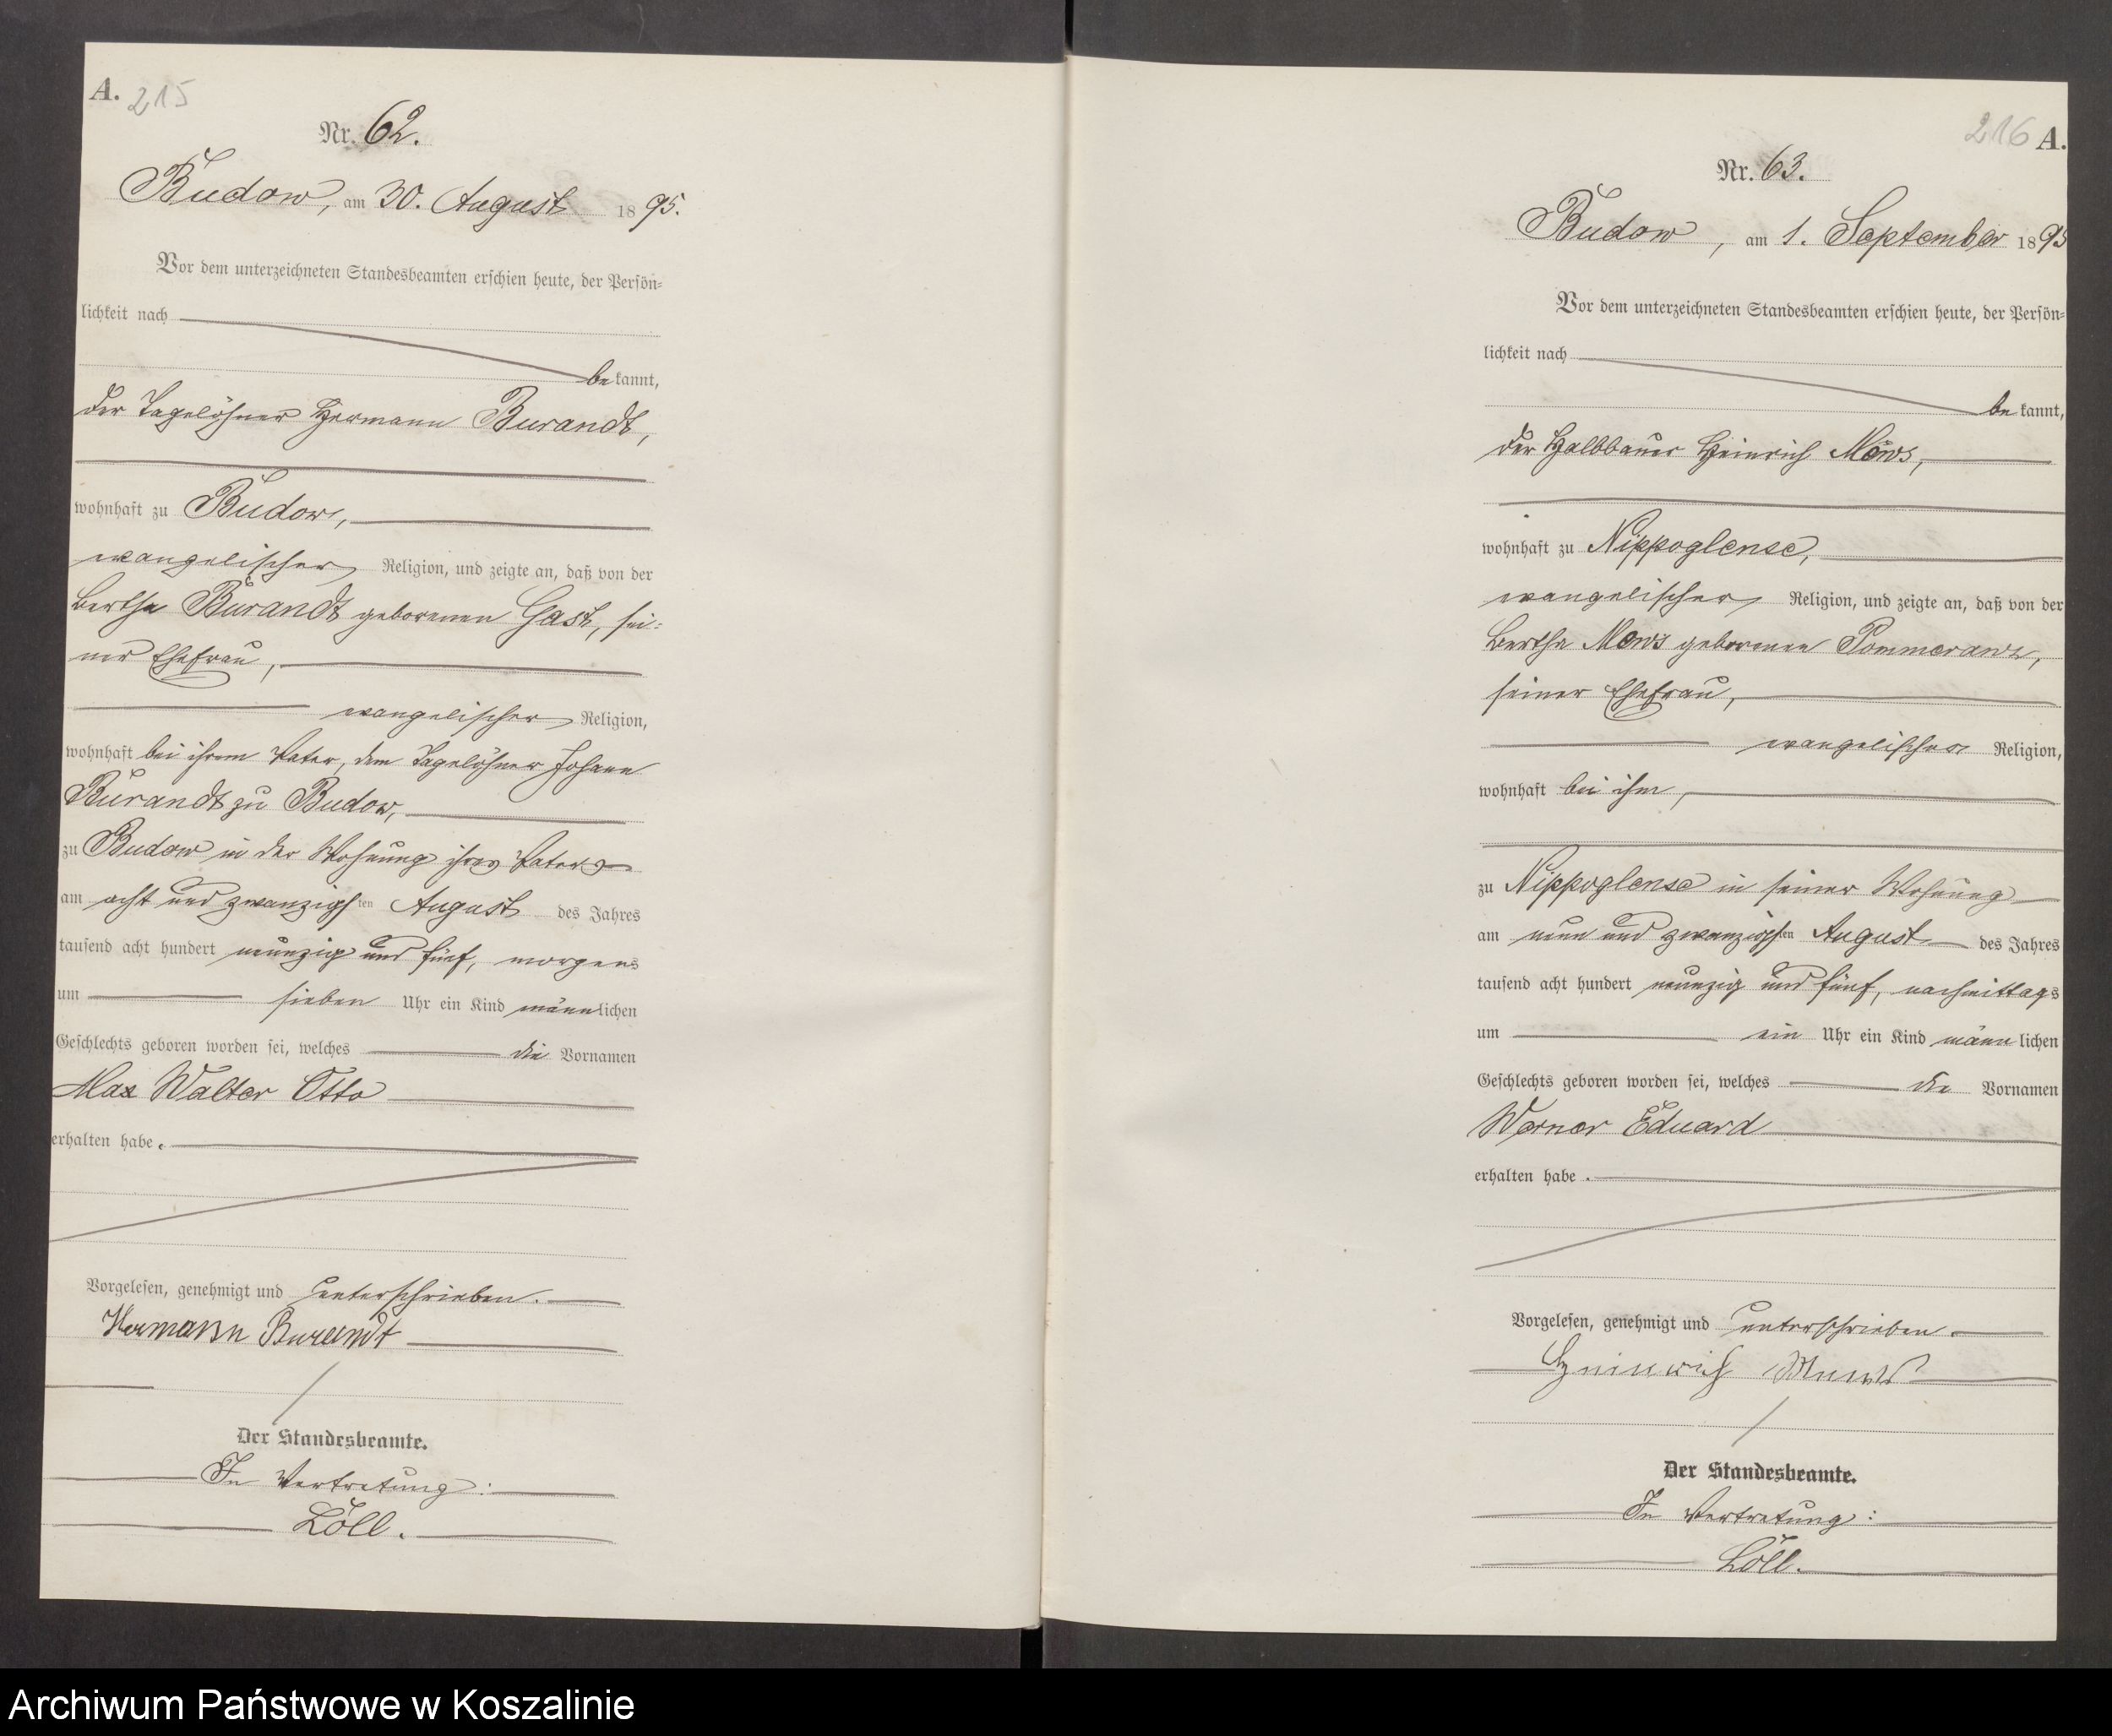 A. 215
Nr. 62.
Budow, am 30. August 1895.
Vor dem unterzeichneten Standesbeamten erschien heute, der Persön=
lichkeit nach
bekannt,
der Tagelöhner Hermann Burandt,
wohnhaft zu Budow,
evangelischer Religion, und zeigte an, daß von der
Bertha Burandt geborenen Gast, sei=
ner Ehefrau,
evangelischer Religion,
wohnhaft bei ihrem Vater, dem Tagelöhner Johann
Burandt zu Budow,
zu Budow in der Wohnung ihres Vaters
am acht und zwanzigsten August des Jahres
tausend acht hundert neunzig und fünf, morgens
um sieben Uhr ein Kind männlichen
Geschlechts geboren worden sei, welches die Vornamen
Max Walter Otto
erhalten habe.
Vorgelesen, genehmigt und unterschrieben.
Hermann Burandt
Der Standesbeamte.
In Vertretung:
Löll.
216 A.
Nr. 63.
Budow, am 1. September 1895
Vor dem unterzeichneten Standesbeamten erschien heute, der Persön=
lichkeit nach
bekannt,
der Halbbauer Heinrich Mews,
wohnhaft zu Nippoglense,
evangelischer Religion, und zeigte an, daß von der
Bertha Mews geborenen Pommeranz,
seiner Ehefrau,
evangelischer Religion,
wohnhaft bei ihm,
zu Nippoglense in seiner Wohnung
am neun und zwanzigsten August des Jahres
tausend acht hundert neunzig und fünf, nachmittags
um ein Uhr ein Kind männlichen
Geschlechts geboren worden sei, welches die Vornamen
Werner Eduard
erhalten habe.
Vorgelesen, genehmigt und unterschrieben.
Heinrich Mews
Der Standesbeamte.
In Vertretung:
Löll.
Archiwum Państwowe w Koszalinie